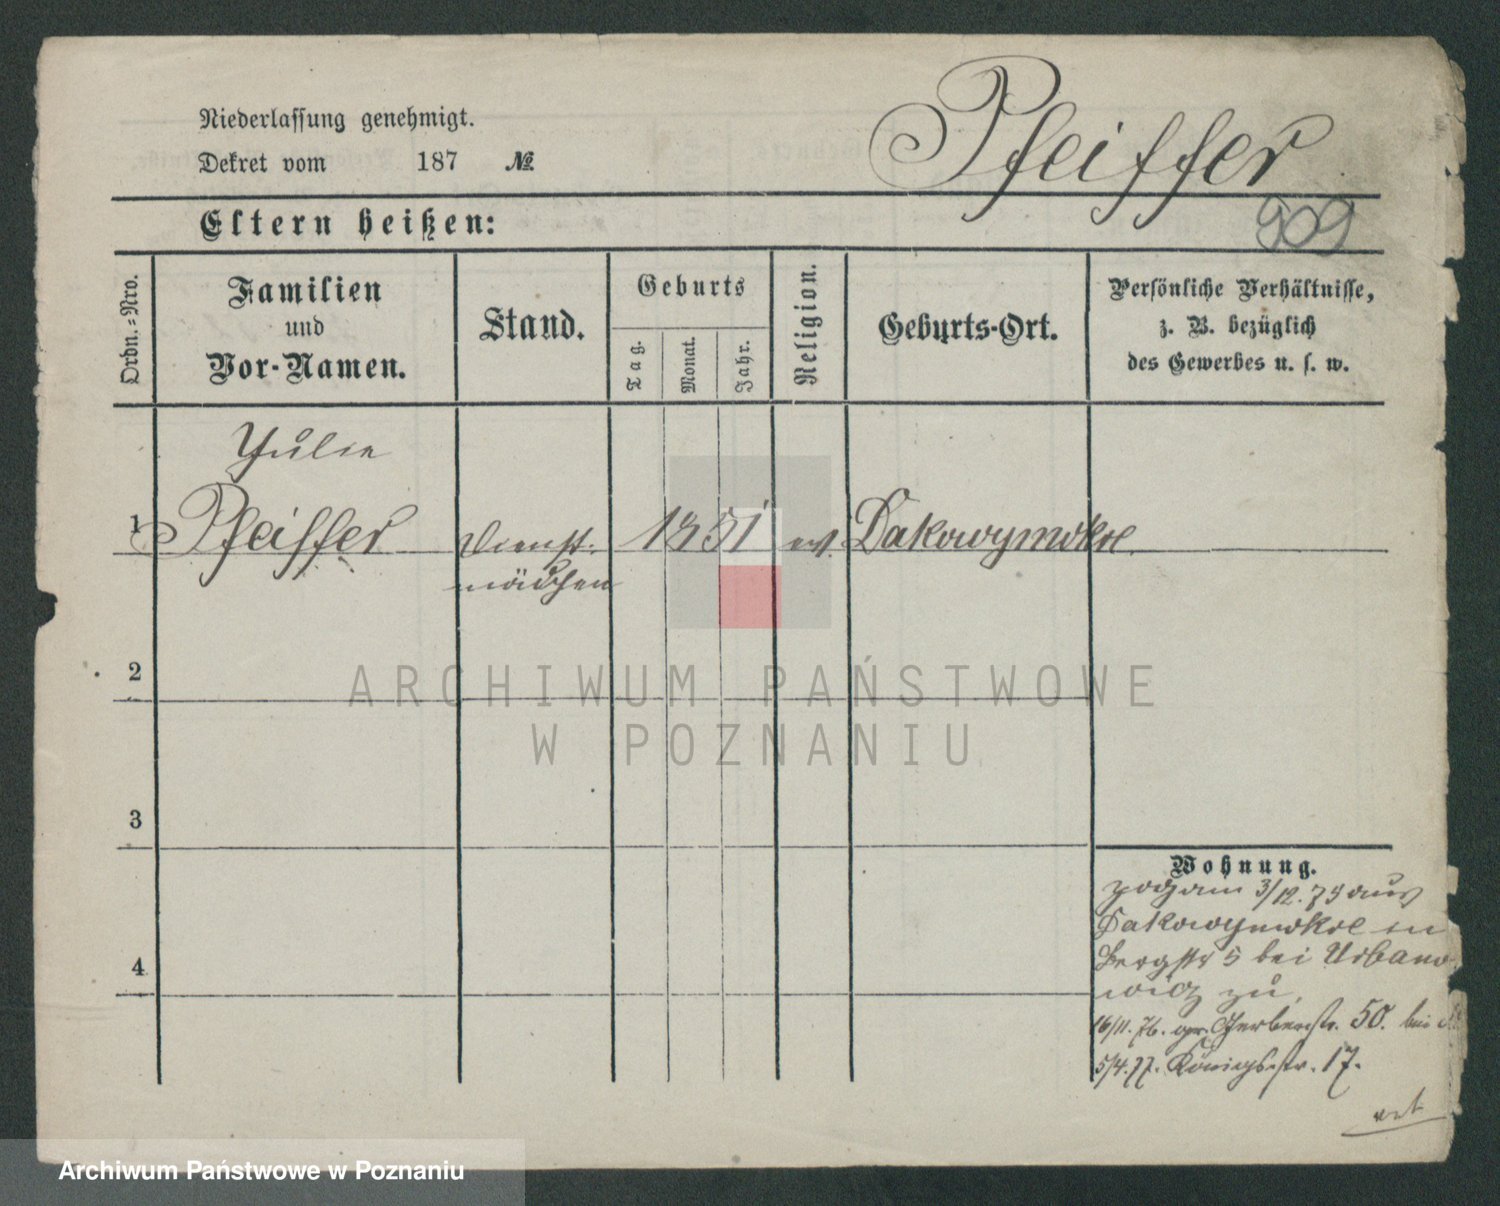 Niederlassung genehmigt.
Dekret vom 187 №
Pfeiffer
909
Eltern heißen:
Ordn.=Nro.
Familien
und
Vor-Namen.
Stand.
Geburts
Tag.
Monat.
Jahr.
Religion.
Geburts-Ort.
Persönliche Verhältnisse,
z. B. bezüglich
des Gewerbes u. s. w.
Julie
1 Pfeiffer Dienst- 1851 ev. Dakowymokre
mädchen
2
ARCHIWUM PAŃSTWOWE
W POZNANIU
3
Wohnung.
zog am 3/12. 75 aus
Dakowymokre in
Bergstr 5 bei Urbano
witz zu
4
16/11. 76. Gerberstr. 50. bei
5/4. 77. Königsstr. 17.
Archiwum Państwowe w Poznaniu